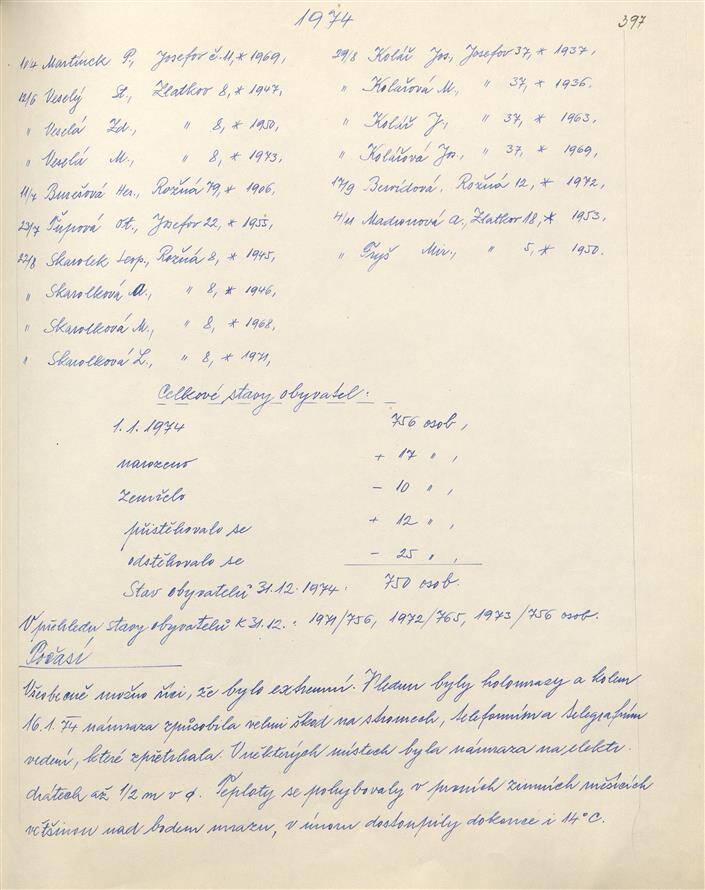 1974
397
11/4 Martínek P., Josefov č. 11, * 1969,
12/6 Veselý St., Zlatkov 8, * 1947,
" Veselá Zd., " 8, * 1950,
" Veselá M., " 8, * 1973,
11/7 Burešová Her., Rožná 79, * 1906,
23/7 Ťupová Ot., Josefov 22, * 1955,
22/8 Skarolek Serp., Rožná 8, * 1945,
" Skarolková A., " 8, * 1946,
" Skarolková M., " 8, * 1968,
" Skarolková L., " 8, * 1971,
29/8 Kolář Jos., Josefov 37, * 1937,
" Kolářová M., " 37, * 1936,
" Kolář J., " 37, * 1963,
" Kolářová Jos., " 37, * 1969,
17/9 Rožná 12, * 1972,
4/11 A., Zlatkov 18, * 1953,
" Fryš Mir., " 5, * 1950.
Celkové stavy obyvatel:
1.1.1974 756 osob,
narozeno + 17 " ,
zemřelo - 10 " ,
přistěhovalo se + 12 " ,
odstěhovalo se - 25 " ,
Stav obyvatelů 31.12.1974: 750 osob.
V přehledu stavy obyvatelů k 31.12.: 1971/756, 1972/765, 1973/756 osob.
Počasí
Všeobecně možno říci, že bylo extremní. V lednu byly holomrazy a kolem
16.1.74 námraza způsobila velmi škod na stromech, telefonním a telegrafním
vedení, které zpřetrhala. V některých místech byla námraza na elektr.
drátech až 1/2 m v ø. Teploty se pohybovaly v prvních zimních měsících
většinou nad bodem mrazu, v únoru dostoupily dokonce i 14°C.